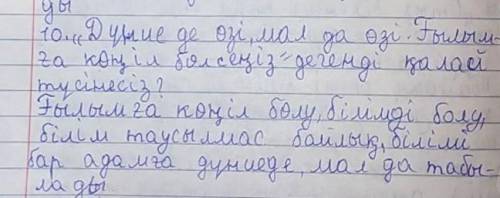 ды
10. „Дүние де өзі, мал да өзі. Ғылым-
ға көңіл бөлсеңіз" дегенді қалай
түсінесіз?
Ғылымға көңіл бөлу, білімді болу,
білім таусылмас байлық, білімі
бар адамға дүниеде, мал да табы-
лады